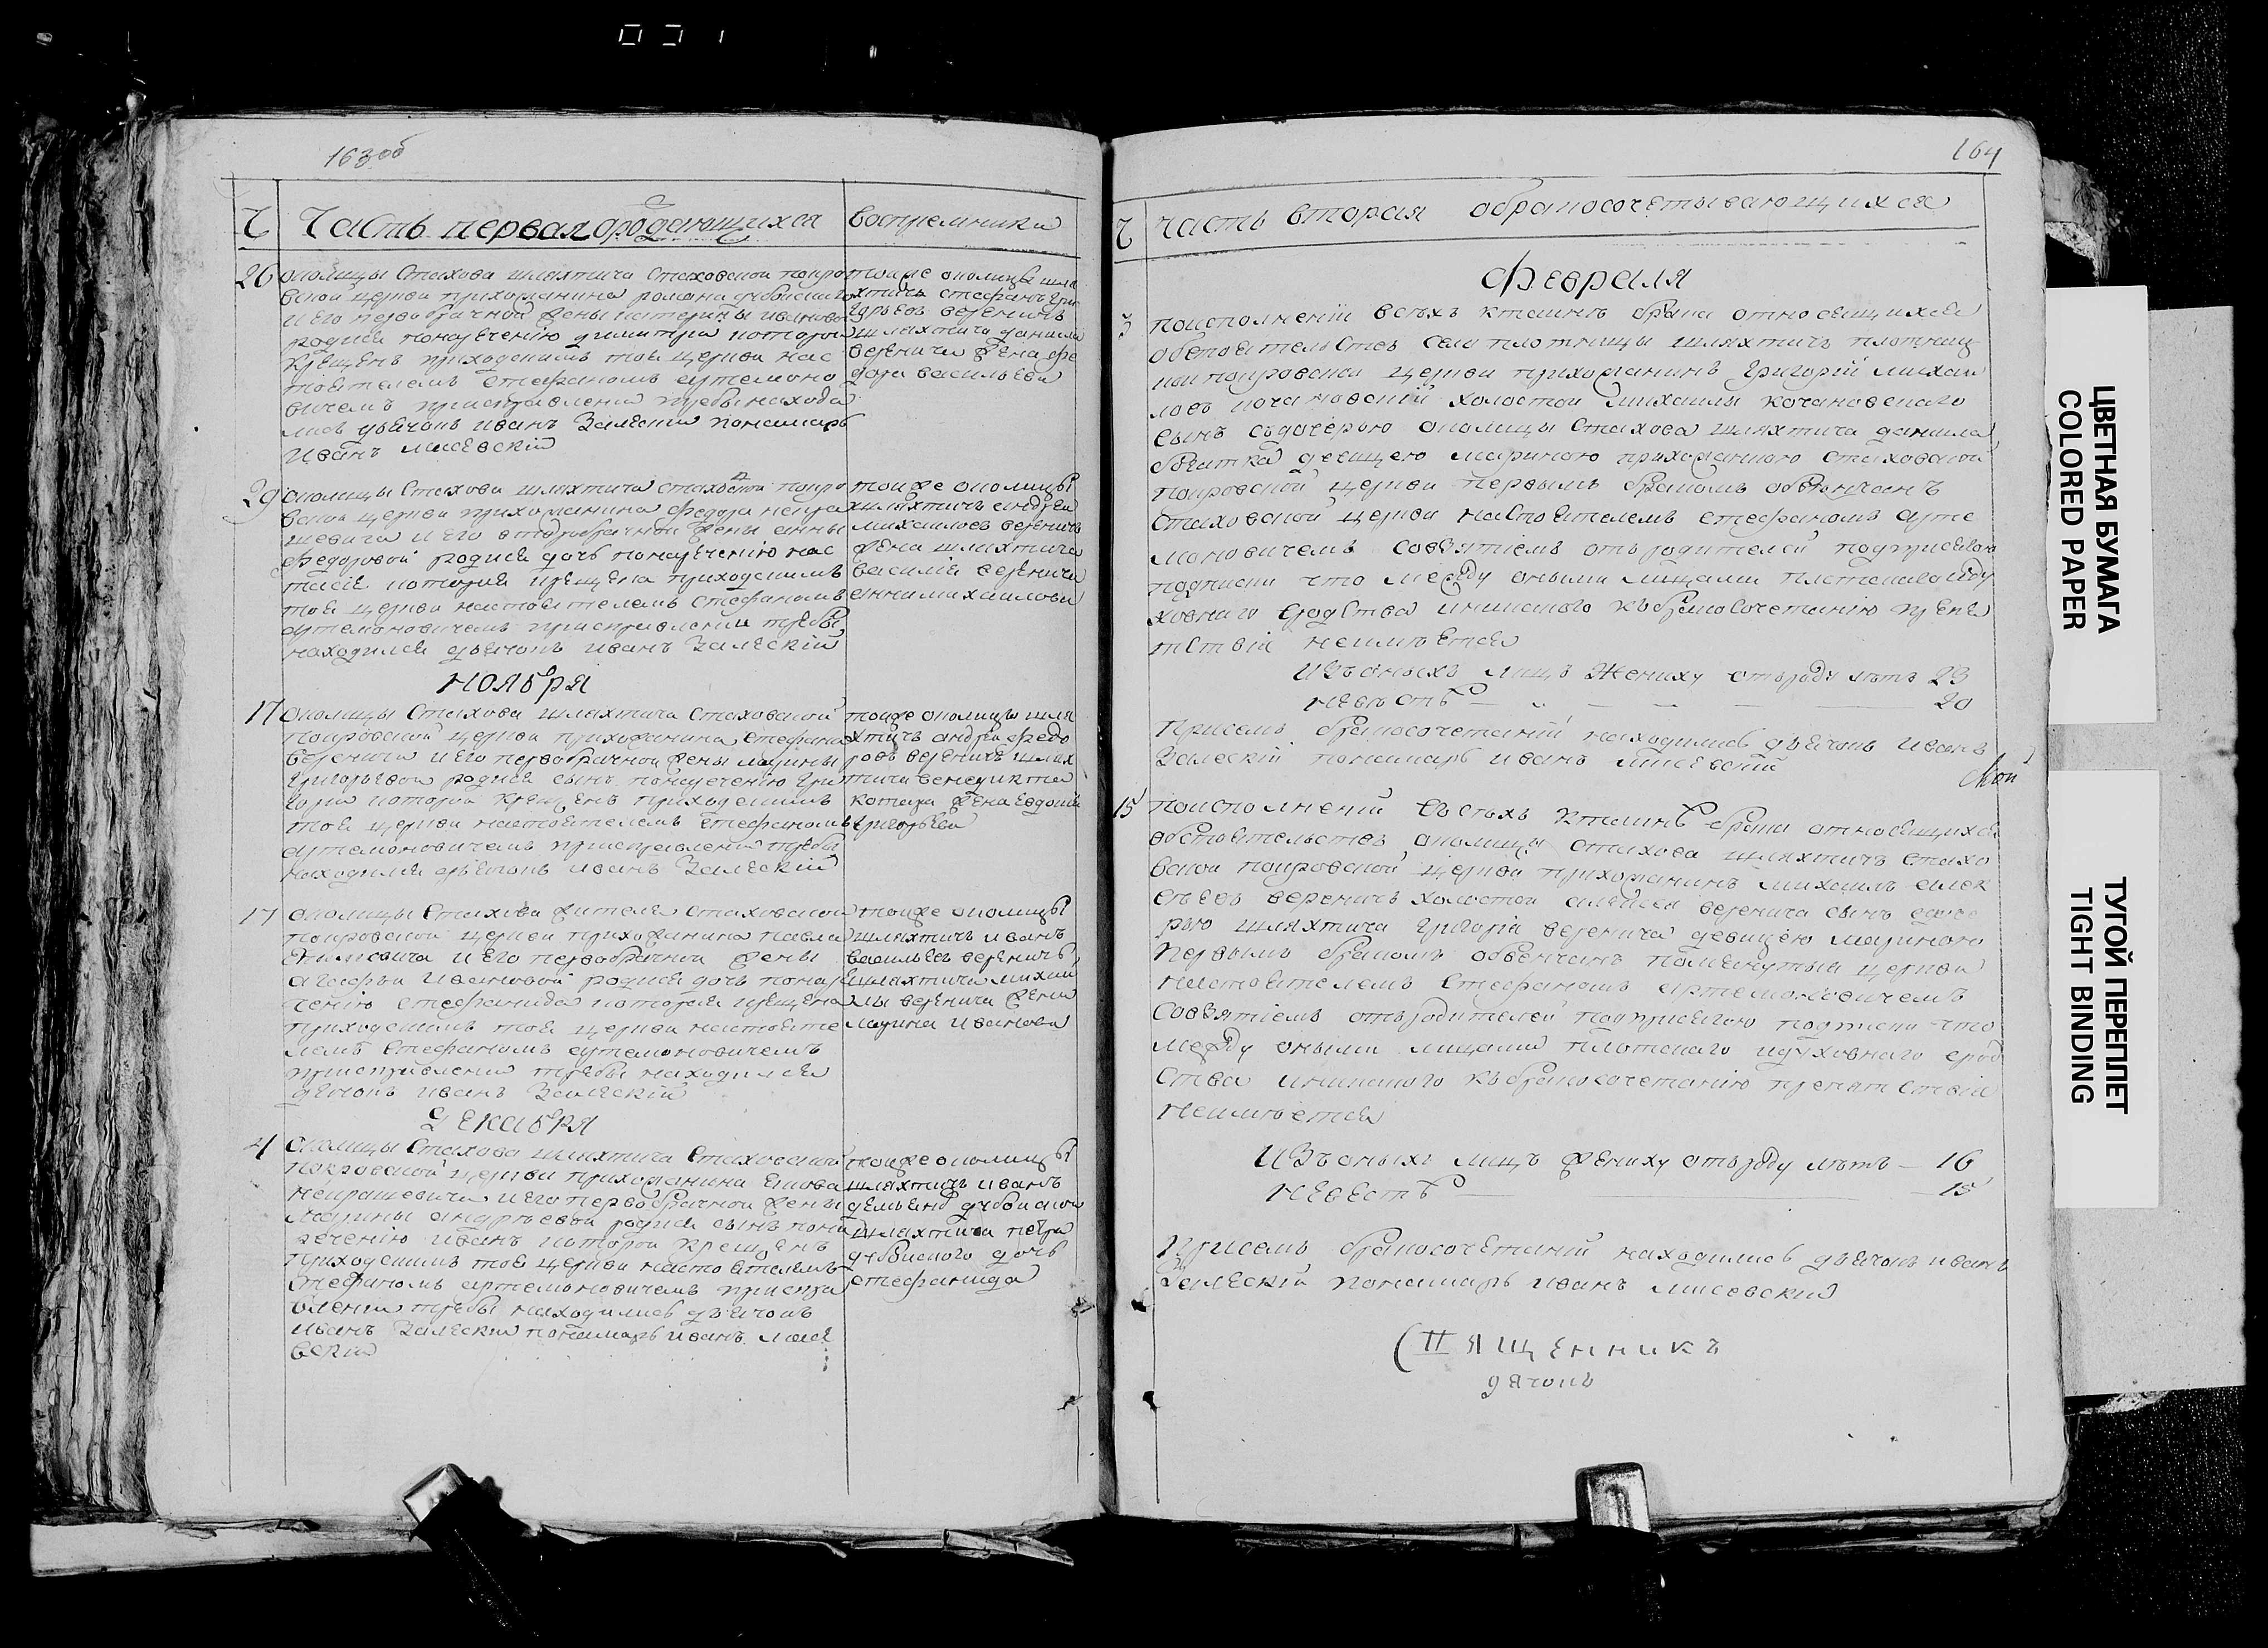 163 об
Ч Часть первая о рождающихся
воспремники
26 околицы Стахова шляхтича Стаховской покро
вской церкви прихожанина романа дубойского
и его первобрачной жены катерины ивановой
родися понаречению димитри которой
крещенъ приходскимъ тоя церкви нас
тоятелемъ стефаномъ артемоно
вичемъ присправлении требы находи
лись дьячокъ иванъ Залескiи пономарь
Иванъ лисевскiй
тойже околицы шля
хтичъ стефанъ гри
горьевъ вереничъ
шляхтича данила
веренича жена фе
дора васильева
29 околицы Стахова шляхтича стаховской покро
вской церкви прихожанина федора некра
шевича и его второбрачной жены анны
федоровой родися дочь понаречению нас
тасiя которая крещена приходскимъ
тоя церкви настоятелемъ Стефаномъ
артемоновичемъ присправлении требы
находился дьячокъ иванъ Залескiй
тойже околицы
шляхтичъ андрей
михаиловъ вереничъ
жена шляхтича
василiя веренича
анна михаилова
Ноября
17 околицы Стахова шляхтича Стаховской
покровской церкви прихожанина стефана
веренича и его первобрачной жены марины
григорьевой родися сынъ понаречению гри
горiи которой крещенъ приходскимъ
тоя церкви настоятелемъ стефаномъ
артемоновичемъ присправлении требы
находился дьячокъ иванъ Залескiй
тойже околицы шля
хтичъ андрей федо
ровъ вереничъ шлях
тича венедикта
котара жена Евдокия
григорьева
17 околицы Стахова жителя стаховской
покровской церкви прихожанина павла
и его первобрачной жены
агафьи ивановой родися дочь понаре
чению стефанида которая крещена
приходскимъ тоя церкви настояте
лемъ Стефаномъ артемоновичемъ
присправлении требы находился
дьячокъ иванъ Залескiй
тойже околицы
шляхтичъ иванъ
васильевъ вереничъ
шляхтича михаи
лы веренича жена
марина иванова
Декабря
4 околицы Стахова шляхтича Стаховской
покровской церкви прихожанина
некрашевича и его первобрачной жены
марины андреевой родися сынъ пона
речению иванъ которой крещенъ
приходскимъ тоя церкви настоятелемъ
стефаномъ артемоновичемъ приспра
влении требы находились дьячокъ
иванъ Залескiи пономарь иванъ лисе
вскiй
тойже околицы
шляхтичъ иванъ
демьянъ дубойской
шляхтича петра
дубойского дочь
стефанида
164
Ч Часть вторая о бракосочетывающихся
Февраля
3 поисполненiи всехъ ктаинъ брака относящихся
обстоятельствъ села плотницы шляхтичъ плотниц
кой покровской церкви прихожанинъ григорiй михаи
ловъ кочановскiй холостой михаилы кочановскаго
сынъ съдочерью околицы Стахова шляхтича данила
девицею мариною прихожанкою стаховской
покровской церкви первымъ бракомъ обвенчанъ
стаховской церкви настоятелемъ стефаномъ арте
моновичемъ совзятiемъ отъ родителей подприсягою
подписки что между оными лицами плотскаго иду
ховнаго сродства иникакого къбракосочетанiю препя
тствiй неимеется
Изъ оныхъ лицъ Жениху отъ роду летъ 23
невестъ — 20
Присемъ бракосочетанiй находились дьячокъ иванъ
Залескiй пономарь иванъ лисевскiй
15 поисполненiй всехъ ктаинъ брака относящихся
обстоятельствъ околицы стахова шляхтичъ стахо
вской покровской церкви прихожанинъ михаилъ алек
сеевъ вереничъ холостой алексея веренича сынъ сдоче
рью шляхтича григорiя веренича девицею мариною
первымъ бракомъ обвенчанъ помянутыя церкви
настоятелемъ Стефаномъ артемоновичемъ
совзятiемъ отъродителей подприсягою подписки что
между оными лицами плотскаго идуховнаго срод
ства иникакого къбракосочетанiю препятствiй
неимеется
Изъ оныхъ лицъ жениху отъ роду летъ — 16
невестъ — 15
Присемъ бракосочетанiй находились дьячокъ иванъ
Залескiй пономарь иванъ лисевскiй
Священникъ
дячокъ
ЦВЕТНАЯ БУМАГА
COLORED PAPER
ТУГОЙ ПЕРЕПЛЕТ
TIGHT BINDING